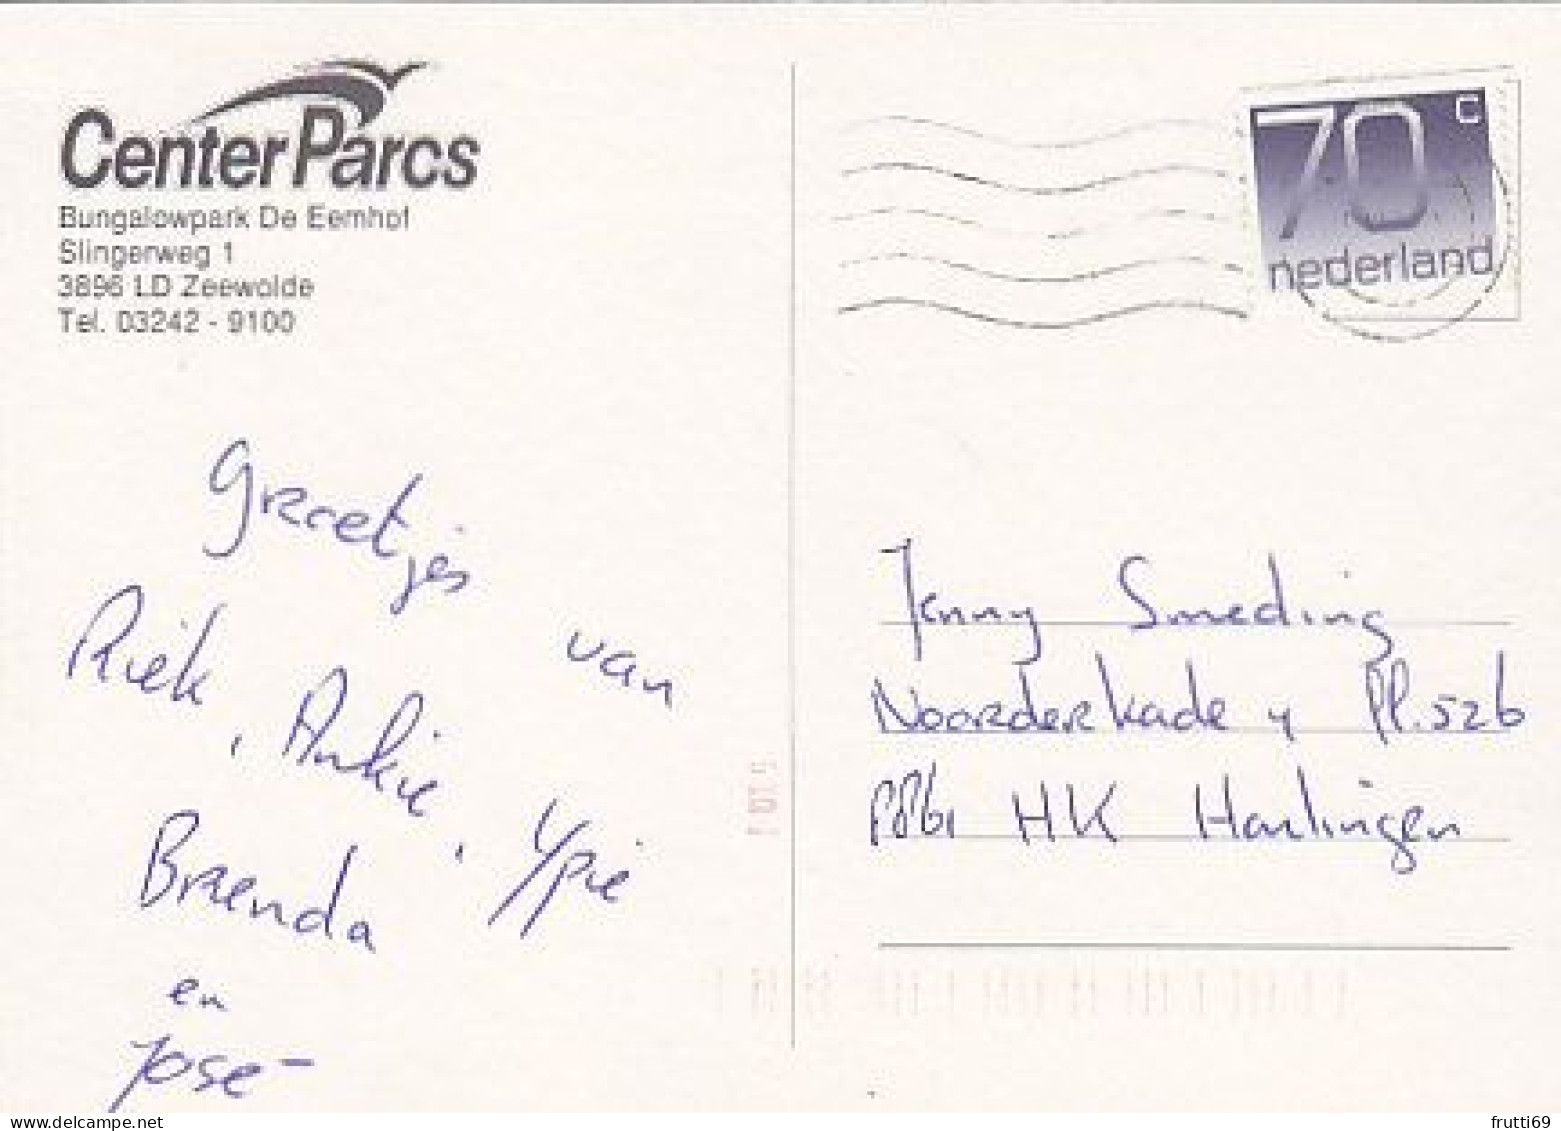 Center Parcs
Bungalowpark De Eemhof
Slingerweg 1
3896 LD Zeewolde
Tel. 03242 - 9100
70 c
nederland
Groetjes
van
Riek, Ankie, Ypie
Brenda
en
José
Jenny Smeding
Noorderkade 4 Pl. 526
8861 HK Harlingen
frutti69